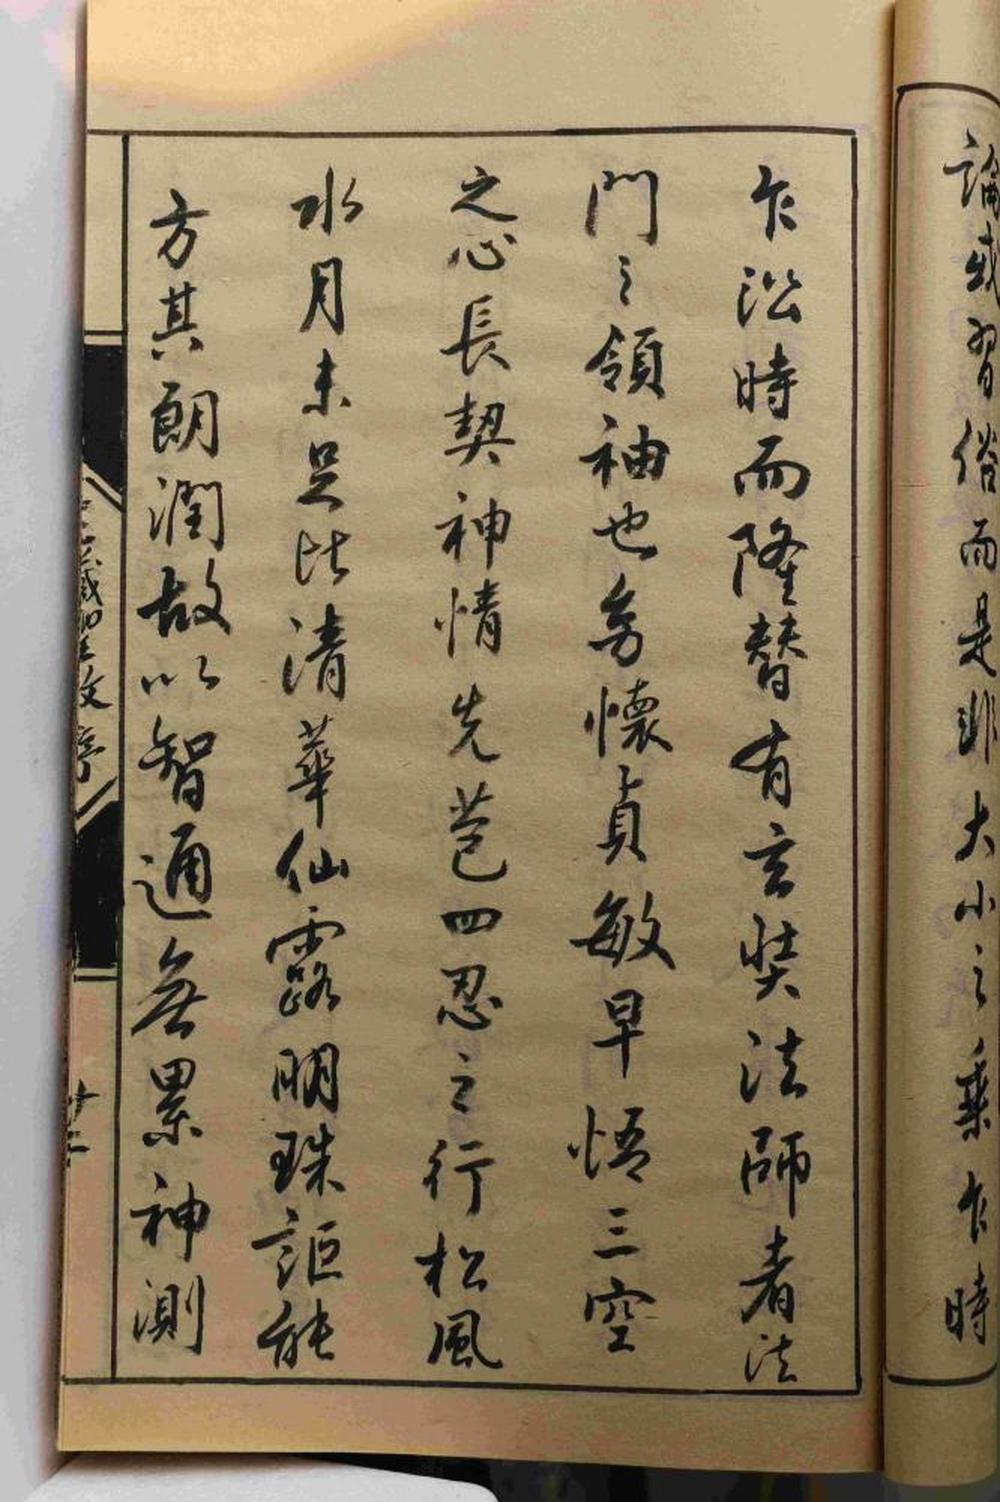 論或習俗而是非大小之乘乍時
乍沿時而隆替有玄奘法師者法
門之領袖也㓜懷貞敏早悟三空
之心長契神情先苞四忍之行松風
水月未足比清華仙露明珠詎能
方其朗潤故以智通無累神測
三藏聖教序
廿二